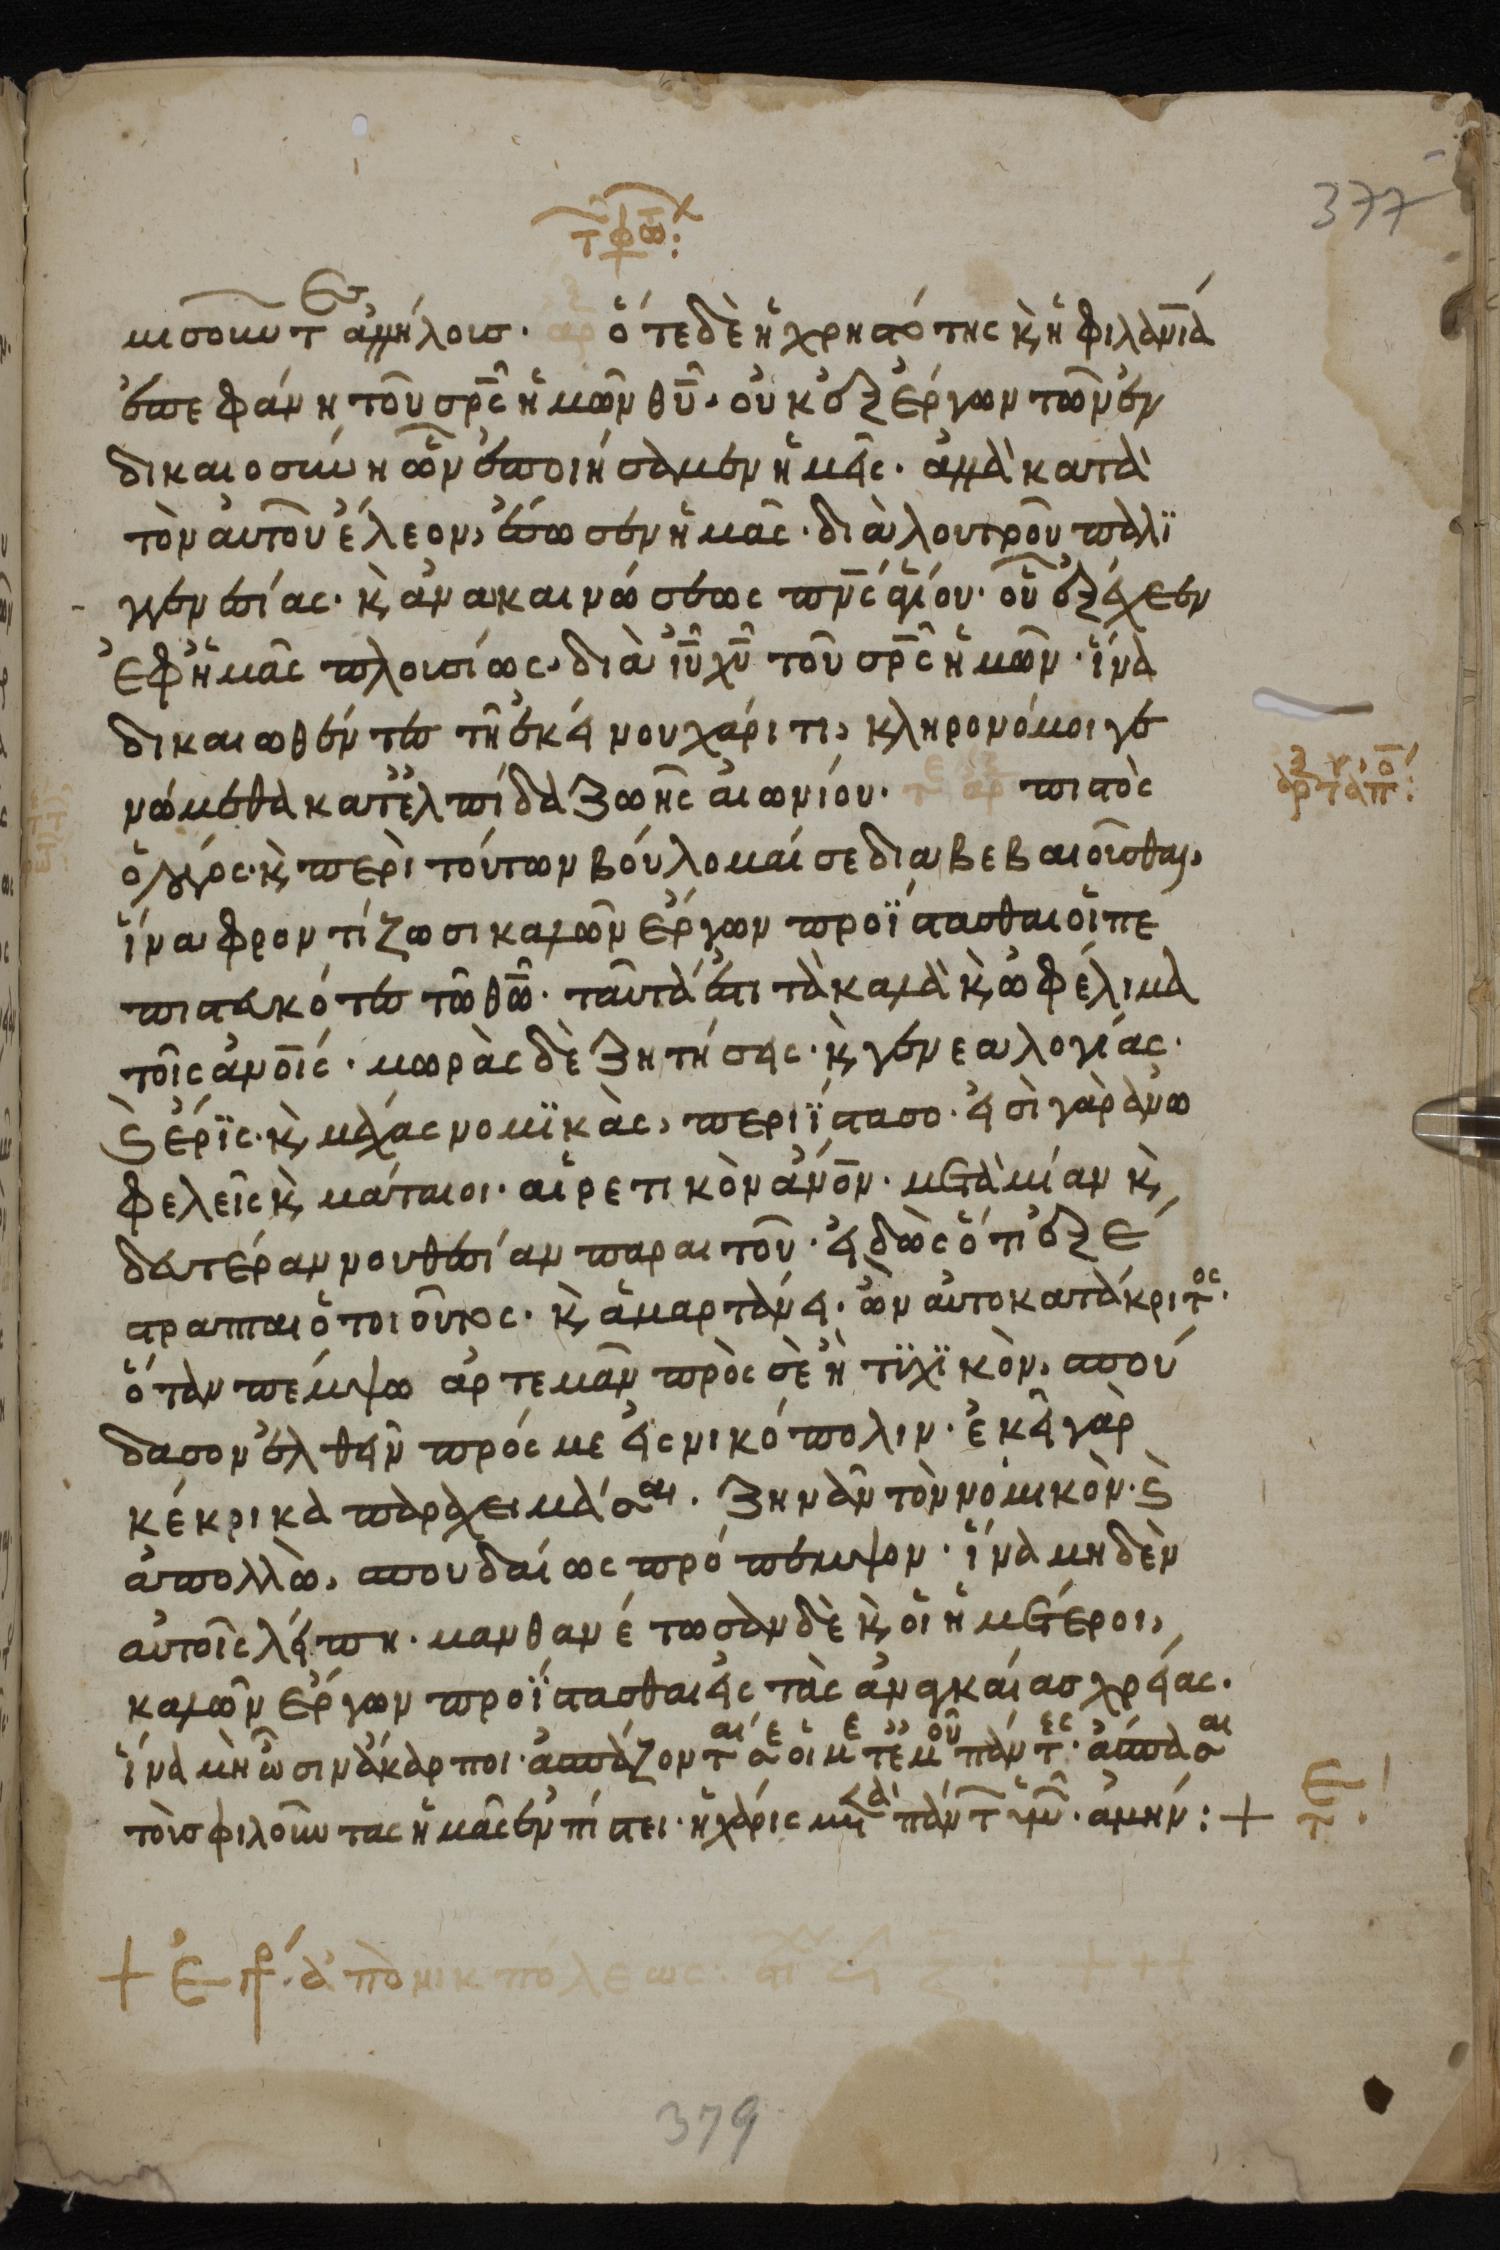 377
τ φω:
μισοῦντες ἀλλήλοις. ὅτε δὲ ἡ χρηστότης κ, ἡ φιλανία
ἐπεφάνη τοῦ σρς ἡμῶν θυ. οὐκ ἐξ ἔργων τῶν ἐν
δικαιοσύνη ὧν ἐποιήσαμεν ἡμεῖς. ἀλλὰ κατὰ
τὸν αὐτοῦ ἔλεον, ἔσωσεν ἡμᾶς. διὰ λουτροῦ παλι
γγενεσίας. κ, ἀνακαινώσεως πνς ἁγίου. οὗ ἐξέχεεν
ἐφ ἡμᾶς πλουσίως, διὰ ιυ χυ τοῦ σρς ἡμῶν. ἵνα
δικαιωθέντες τῆ ἐκείνου χάριτι, κληρονόμοι γε
νώμεθα κατ ἐλπίδα ζωῆς αἰωνίου. πιστὸς
ὁ λόγος. κ, περὶ τούτων βούλομαί σε διαβεβαιοῦσθαι,
ἵνα φροντίζωσι καλῶν ἔργων προΐστασθαι οἱ πε
πιστευκότες τῶ θω. ταῦτά ἐστι τὰ καλὰ κ, ὠφέλιμα
τοῖς ἀνοις. μωρὰς δὲ ζητήσεις. κ, γενεαλογίας.
κ, ἔρϊς. κ, μάχας νομϊκὰς, περιΐστασο. εἰσὶ γὰρ ἀνω
φελεῖς κ, μάταιοι. αἱρετικὸν ἀνον. μετὰ μίαν κ,
δευτέραν νουθεσίαν παραιτοῦ. εἰδὼς ὅτι ἐξέ
στραπται ὁ τοιοῦτος. κ, ἁμαρτάνει. ὢν αὐτοκατάκριτος.
ὅταν πέμψω ἀρτεμᾶν πρὸς σὲ ἢ τϋχϊκὸν, σπού
δασον ἐλθεῖν πρός με εἰς νικόπολιν. ἐκεῖ γὰρ
κέκρικα παραχειμάσαι. ζηνᾶν τὸν νομικὸν. κ,
ἀπολλὼ, σπουδαίως πρόπεμψον. ἵνα μηδὲν
αὐτοῖς λείπη. μανθανέτωσαν δὲ κ, οἱ ἡμέτεροι,
καλῶν ἔργων προΐστασθαι εἰς τὰς ἀναγκαίας χρείας.
ἵνα μὴ ὦσιν ἄκαρποι. ἀσπάζονταί σε οἱ μετ ἐμοῦ πάντες. ἄσπασαι
τοὺς φιλοῦντας ἡμᾶς ἐν πίστει. ἡ χάρις μετὰ πάντων ὑμῶν. ἀμήν: +
+ ἐγρ. ἀπὸ νικοπόλεως: +++
379